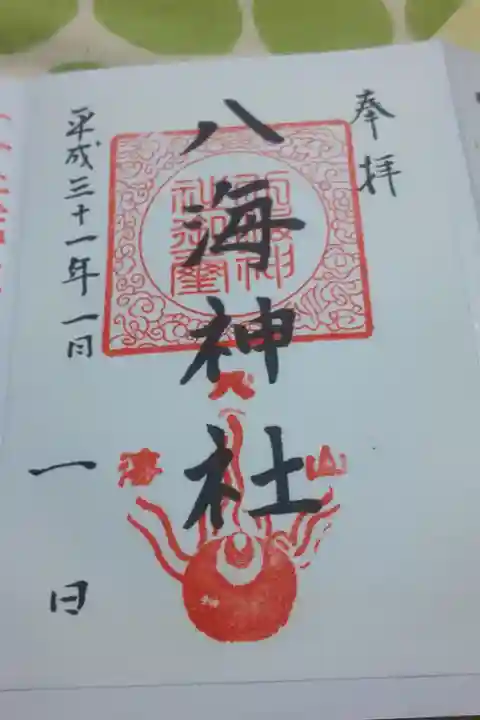 奉拝
八海神社
八
海
山
平成三十一年一月
一日